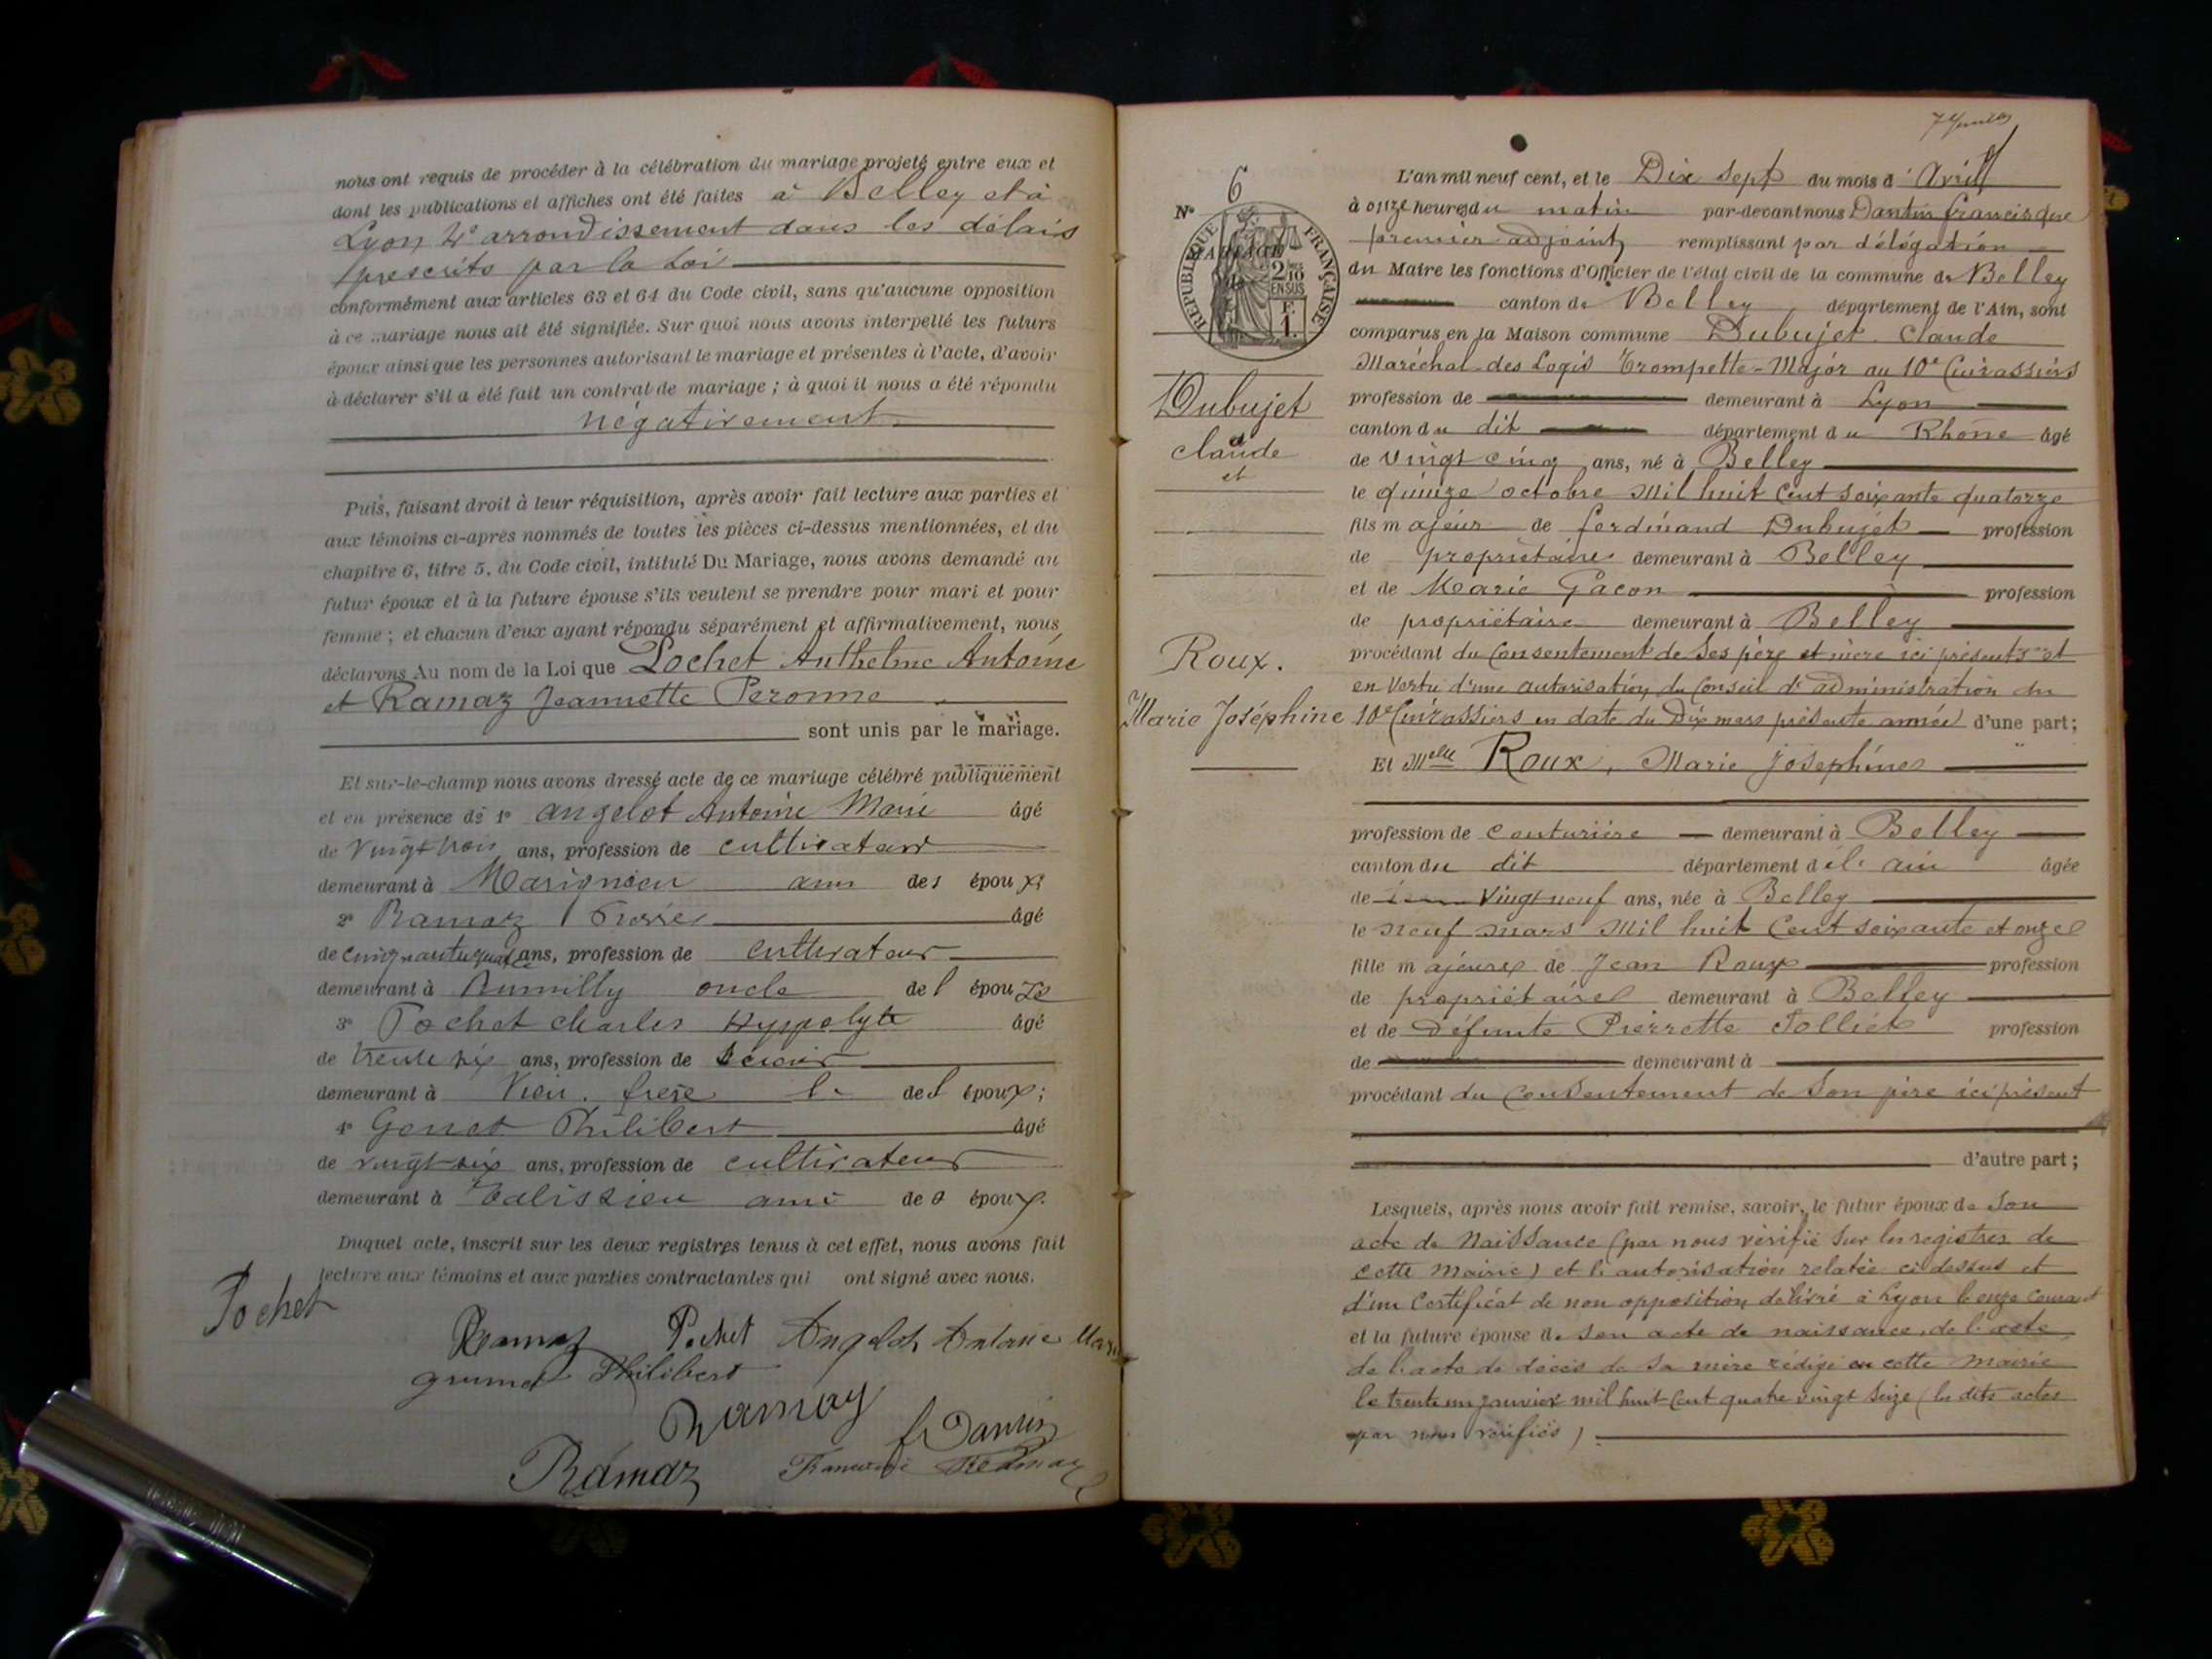 nous ont requis de procéder à la célébration du mariage projeté entre eux et
dont les publications et affiches ont été faites à Belley et à
Lyon 4e arrondissement dans les délais
prescrits par la Loi
conformément aux articles 63 et 64 du Code civil, sans qu'aucune opposition
à ce mariage nous ait été signifiée. Sur quoi nous avons interpellé les futurs
époux ainsi que les personnes autorisant le mariage et présentes à l'acte, d'avoir
à déclarer s'il a été fait un contrat de mariage ; à quoi il nous a été répondu
négativement
Puis, faisant droit à leur réquisition, après avoir fait lecture aux parties et
aux témoins ci-après nommés de toutes les pièces ci-dessus mentionnées, et du
chapitre 6, titre 5, du Code civil, intitulé Du Mariage, nous avons demandé au
futur époux et à la future épouse s'ils veulent se prendre pour mari et pour
femme ; et chacun d'eux ayant répondu séparément et affirmativement, nous
déclarons Au nom de la Loi que Pochet Anthelme Antoine
et Ramaz Jeannette Peronne
sont unis par le mariage.
Et sur-le-champ nous avons dressé acte de ce mariage célébré publiquement
et en présence de 1° angelot Antoine Marie âgé
de vingt trois ans, profession de cultivateur
demeurant à Marignieu ami des époux
2° Ramaz Pierre âgé
de cinquante quatre ans, profession de cultivateur
demeurant à Rumilly oncle de l épouze
3° Pochet charles Hyppolyte âgé
de trente six ans, profession de
demeurant à Vieu. frère de l époux ;
4° Philibert âgé
de vingt-six ans, profession de cultivateur
demeurant à Talissieu ami de époux.
Duquel acte, inscrit sur les deux registres tenus à cet effet, nous avons fait
lecture aux témoins et aux parties contractantes qui ont signé avec nous.
Pochet
Ramaz Pochet Angelot Antoine Marie
Philibert
Ramaz
f Dantin
Ramaz Ramaz
N° 6
RÉPUBLIQUE FRANÇAISE
2/10 EN SUS
F. 1.
Dubujet
claude
et
Roux.
Marie Joséphine
L'an mil neuf cent, et le Dix Sept du mois d'Avril
à onze heures du matin par-devant nous Dantin francisque
premier adjoint remplissant par délégation
du Maire les fonctions d'Officier de l'état civil de la commune de Belley
canton de Belley département de l'Ain, sont
comparus en la Maison commune Dubujet Claude
Maréchal-des Logis Trompette-Major au 10e Cuirassiers
profession de demeurant à Lyon
canton du dit département du Rhône âgé
de vingt cinq ans, né à Belley
le quinze octobre Mil huit Cent soixante quatorze
fils majeur de ferdinand Dubujet profession
de propriétaire demeurant à Belley
et de Marie Gacon profession
de propriétaire demeurant à Belley
procédant du Consentement de Ses père et mère ici présents et
en Vertu d'une autorisation du Conseil d'administration du
10e Cuirassiers en date du Dix mars présente année d'une part ;
Et Melle Roux, Marie joséphine
profession de couturière demeurant à Belley
canton du dit département de l'ain âgée
de Vingt neuf ans, née à Belley
le neuf mars Mil huit Cent soixante et onze
fille majeure de Jean Roux profession
de propriétaire demeurant à Belley
et de défunte Pierrette Jolliet profession
de demeurant à
procédant du Consentement de Son père ici présent
d'autre part ;
Lesquels, après nous avoir fait remise, savoir, le futur époux de Son
acte de Naissance (par nous vérifié sur les registres de
cette Mairie) et l'autorisation relatée ci dessus et
d'un Certificat de non opposition délivré à Lyon le onze courant
et la future épouse de son acte de naissance, de l'acte
de l'acte de décès de Sa mère rédigé en cette Mairie
le trente un janvier mil huit Cent quatre vingt Seize (les dits actes
par nous vérifiés)